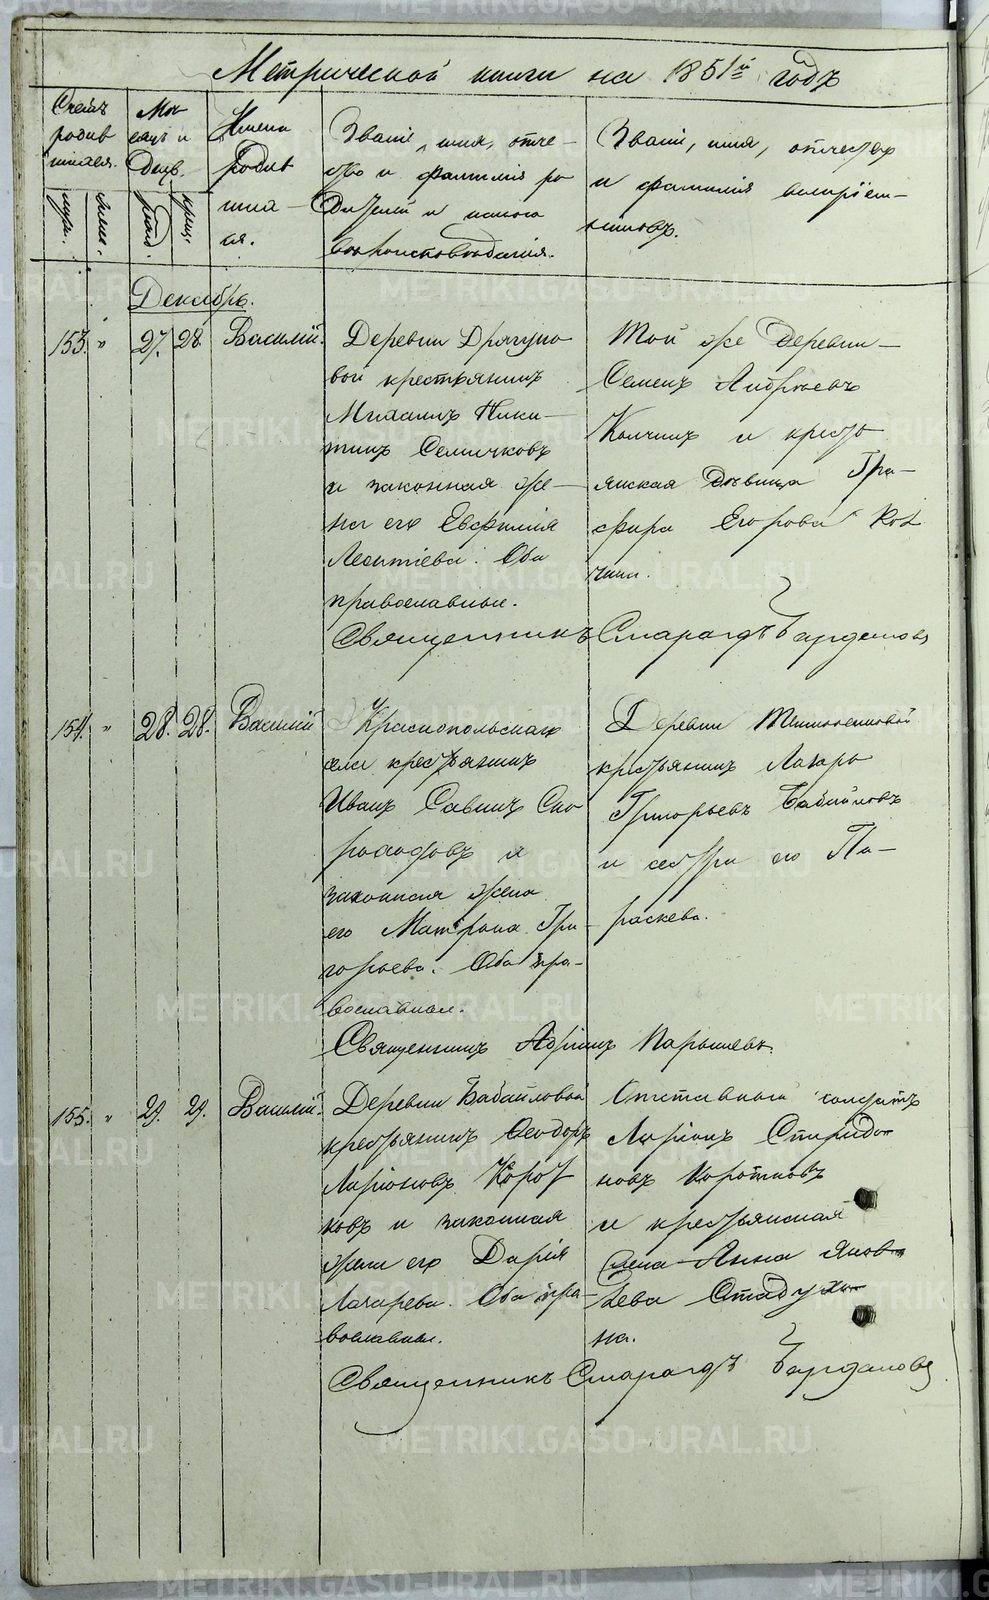 Метрической книги на 1851й годъ
Счетъ родив шихся.
муж.
женс.
Мѣ сяцъ и День.
рожд.
крещ.
Имена Родив ши — ся.
Званіе, имя, отче —
ство и фамилія ро
дителей и какого
вѣроисповѣданія.
Званіе, имя, отчество
и фамилія воспріем —
никовъ.
Декабрь.
153. " 27. 28 Василій.
Деревни Дрягуно
вой крестьянинъ
Михаилъ Ники —
тинъ Семичковъ
и законная же —
на его Евфимія
Леонтіева. Оба
православные.
Той же деревни —
Семенъ Андреевъ
Колчинъ и кресть
янская дѣвица Гла —
фира Егорова Кол
чина.
Священникъ Смарагдъ Бардановъ
154. " 28. 28. Василій
Краснопольскаго
села крестьянинъ
Иванъ Савинъ Ско
роходовъ и
законная жена
его Матрона Гри —
горьева. Оба пра —
вославные.
Деревни
крестьянинъ Лазарь
Григорьевъ Бабайловъ
и сестра его Па —
раскева.
Священникъ Адріанъ Парышевъ.
155. " 29. 29. Василій.
Деревни Бабайловой
крестьянинъ Ѳеодоръ
Ларіоновъ Корот
ковъ и законная
жена его Дарія
Лазарева. Оба пра —
вославные.
Отставной солдатъ
Ларіонъ Спиридо —
новъ Коротковъ
и крестьянская
жена Анна Яков —
лева Стаду хи —
на.
Священникъ Смарагдъ Бардановъ
METRIKI.GASO-URAL.RU